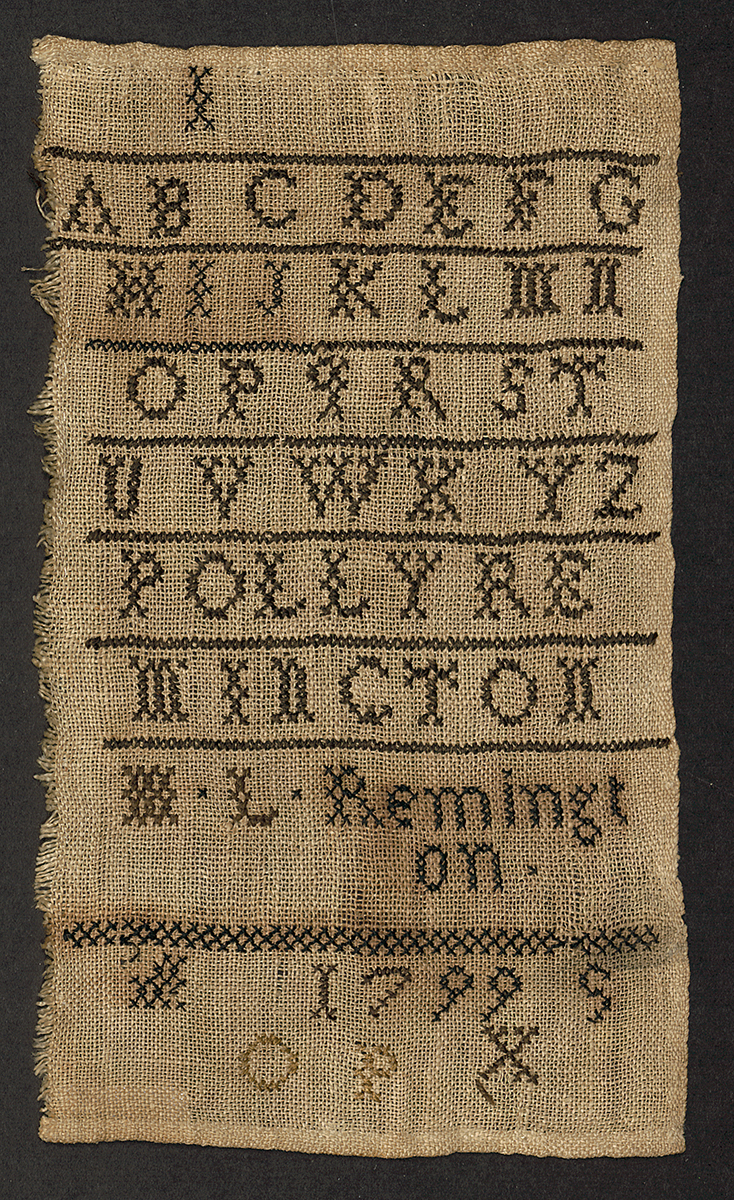 I
A B C D E F G
H I J K L M N
O P q R S T
U V W X Y Z
POLLY RE
MINCTON
M · L · Remingt
on ·
1799 9
O P X